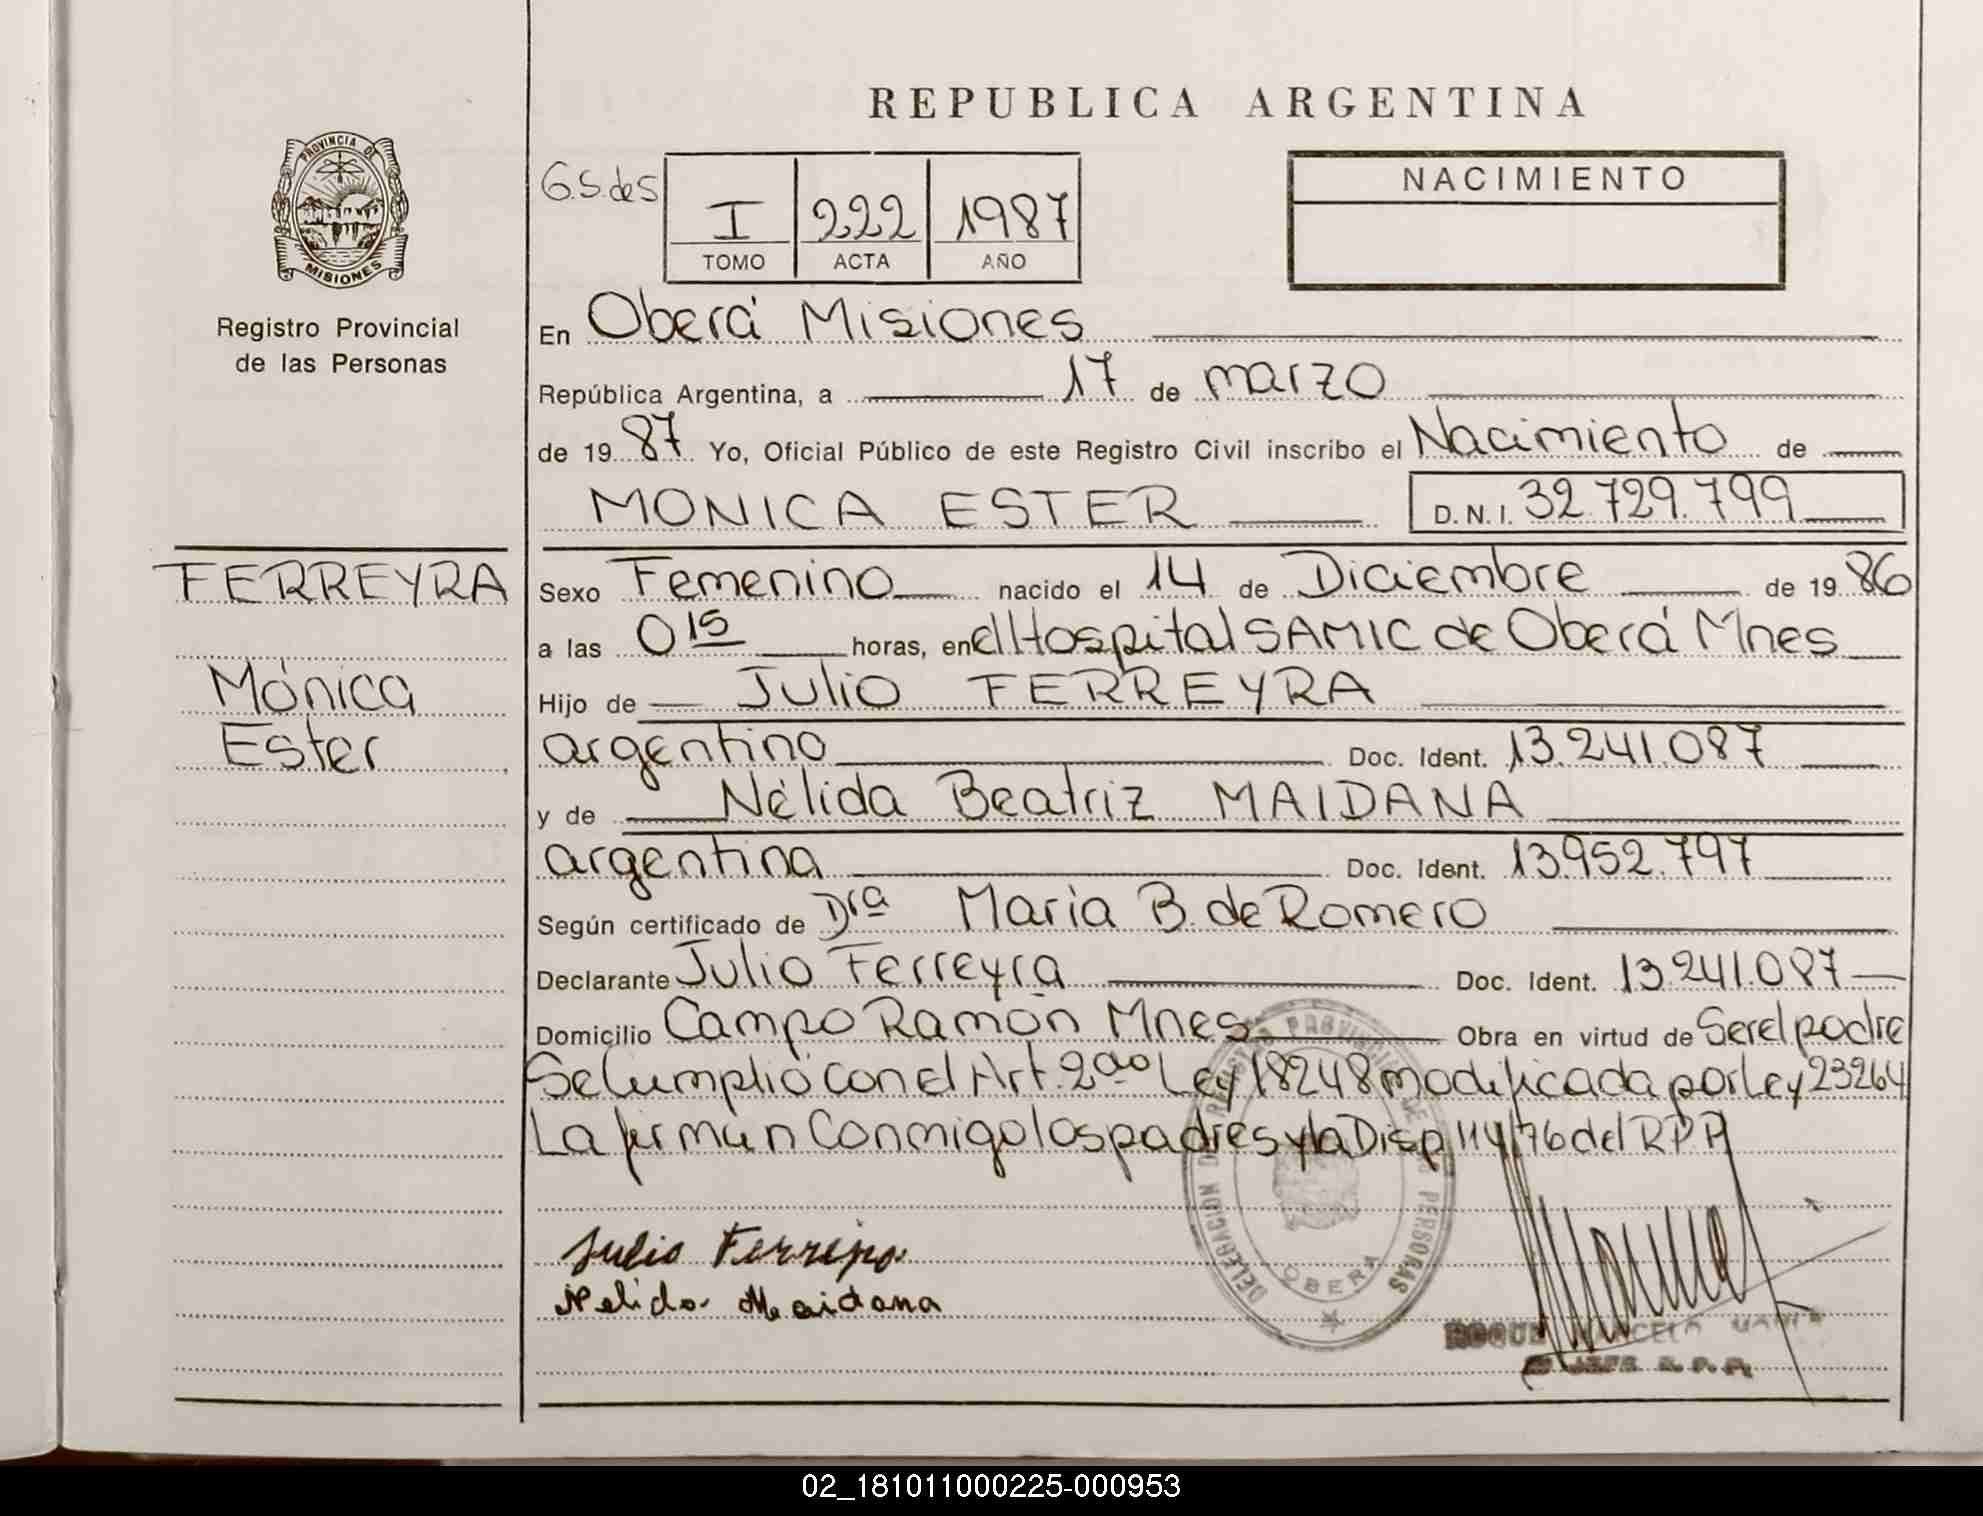 REPUBLICA ARGENTINA
PROVINCIA DE
MISIONES
Registro Provincial
de las Personas
G.S.deS
I 222 1987
TOMO ACTA AÑO
NACIMIENTO
En Oberá Misiones
República Argentina, a 17 de marzo
de 1987 Yo, Oficial Público de este Registro Civil inscribo el Nacimiento de
MONICA ESTER D.N.I. 32.729.799
FERREYRA
Mónica
Ester
Sexo Femenino nacido el 14 de Diciembre de 1986
a las 0 15 horas, en el Hospital SAMIC de Oberá Mnes
Hijo de Julio FERREYRA
argentino Doc. Ident. 13.241.087
y de Nélida Beatriz MAIDANA
argentina Doc. Ident. 13.952.797
Según certificado de Dra María B. de Romero
Declarante Julio Ferreyra Doc. Ident. 13.241.087
Domicilio Campo Ramón Mnes Obra en virtud de Ser el padre
Se Cumplió con el Art. 2do Ley 18248 modificada por Ley 23264
La firman Conmigo los padres y la Disp 114/76 del RPP
Julio Ferreyra
Nelida Maidana
DELEGACION DEL REGISTRO PROVINCIAL DE LAS PERSONAS
OBERA
ROQUE MARCELO
JEFE R.P.P.
02_181011000225-000953